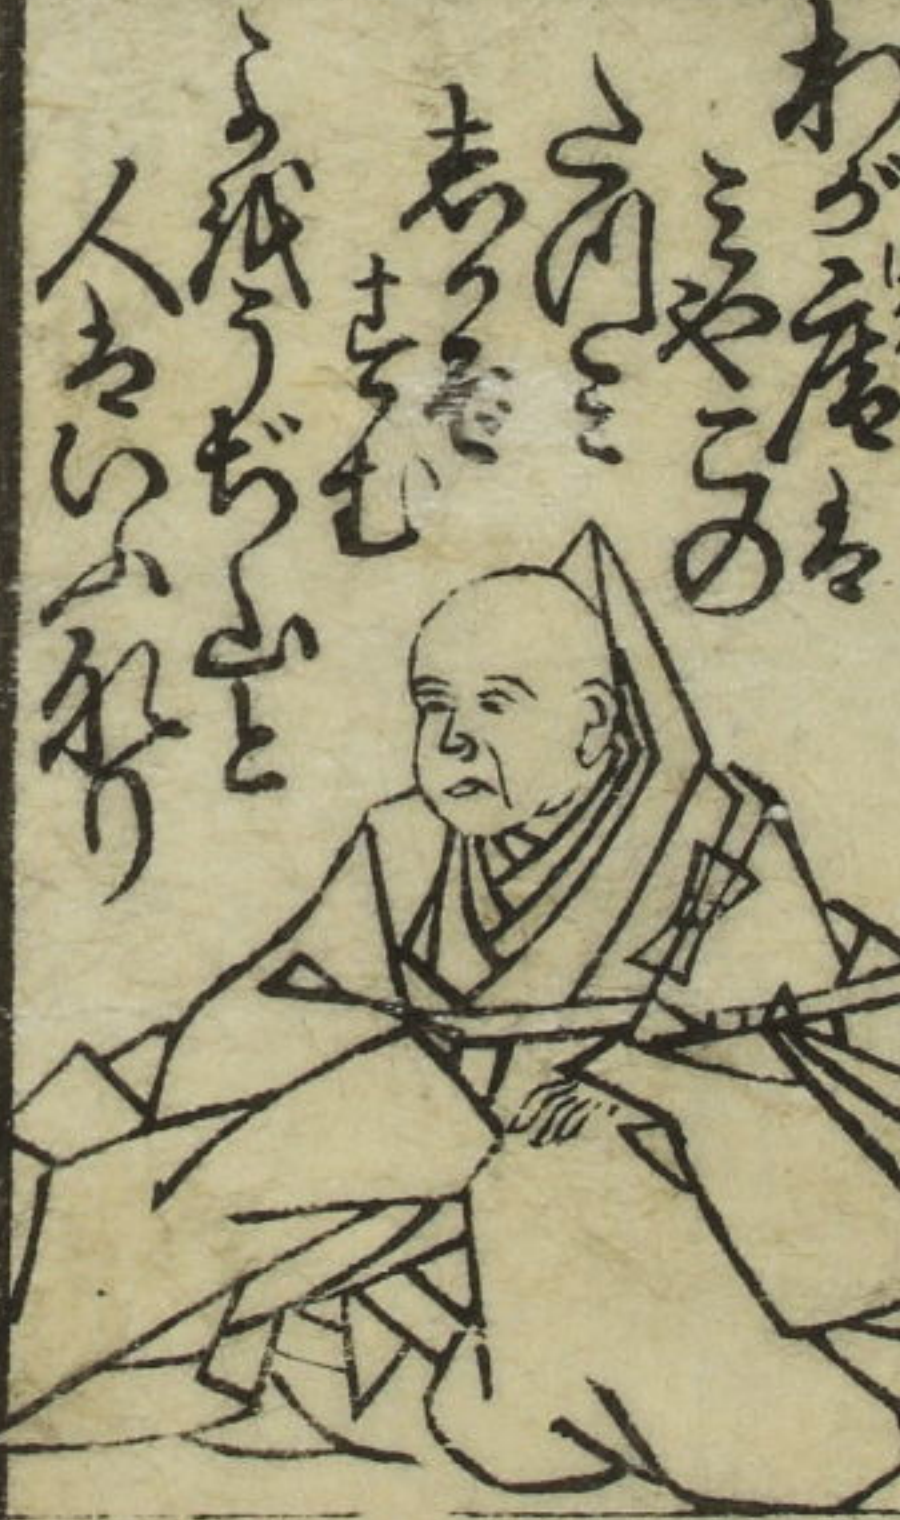 わが庵は
みやこの
たつみ
志かぞ
すむ
よを
うぢ山と
人はいふなり